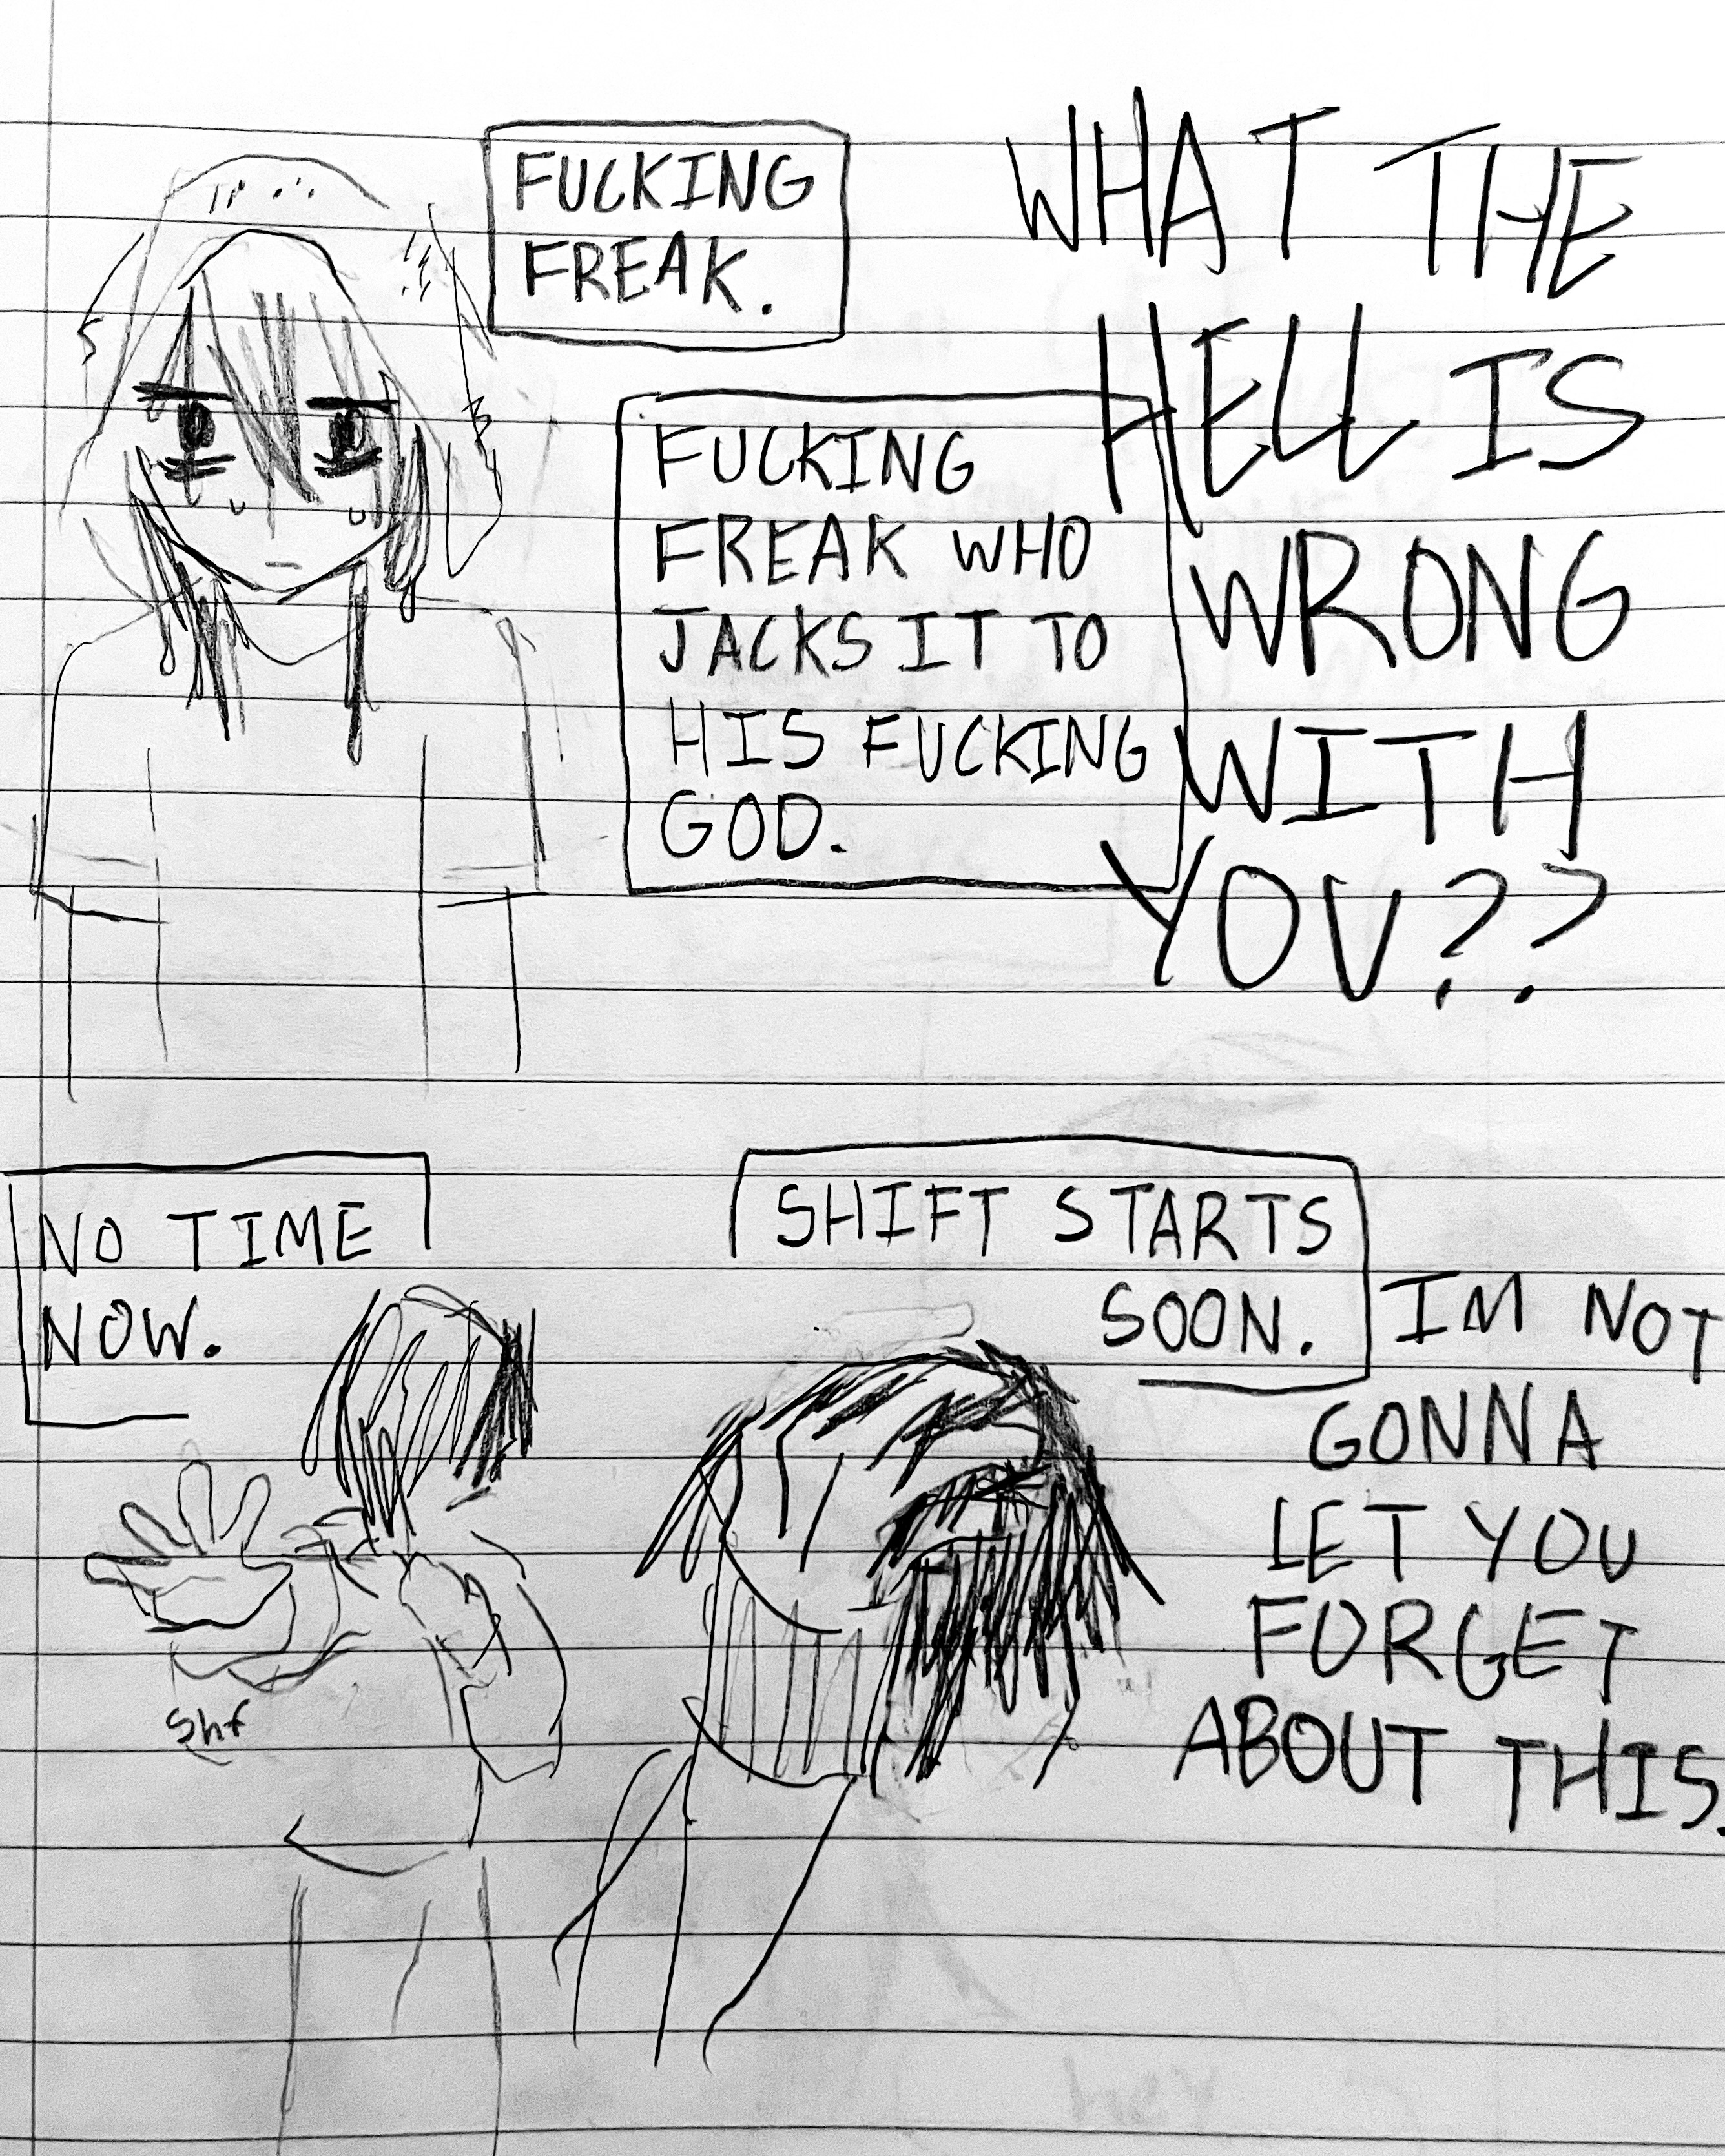 FUCKING
FREAK.
WHAT THE
HELL IS
WRONG
WITH
YOU??
FUCKING
FREAK WHO
JACKS IT TO
HIS FUCKING
GOD.
NO TIME
NOW.
SHIFT STARTS
SOON.
IM NOT
GONNA
LET YOU
FORGET
ABOUT THIS.
Shf